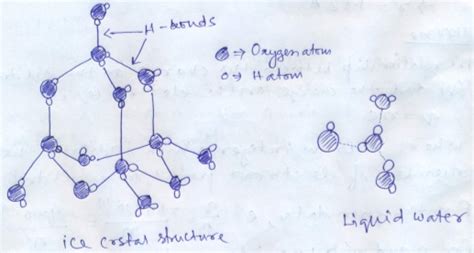 H-bonds
⇒ Oxygen atom
o⇒ H atom
ice crstal structure
Liquid water